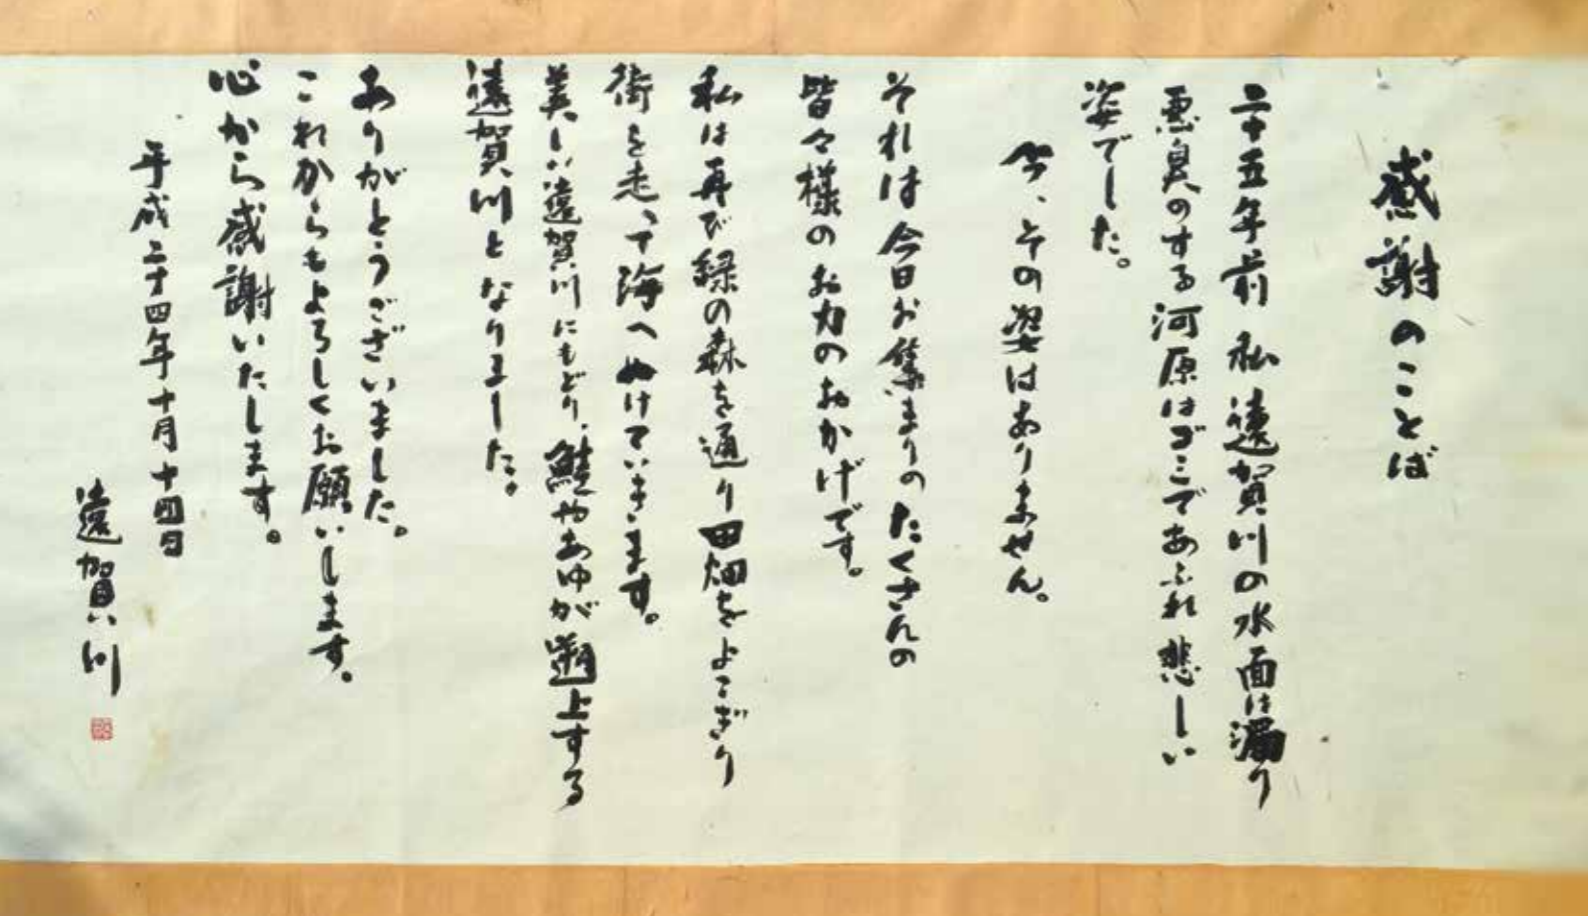 感謝のことば
二十五年前 私 遠賀川の水面は濁り
悪臭のする河原はゴミであふれ悲しい
姿でした。
今、その姿はありません。
それは今日お集まりのたくさんの
皆々様のお力のおかげです。
私は再び緑の森を通り田畑をよこぎり
街を走って海へぬけていきます。
美しい遠賀川にもどり、鮭やあゆが遡上する
遠賀川となりました。
ありがとうございました。
これからもよろしくお願いします。
心から感謝いたします。
平成二十四年十月十四日
遠賀川